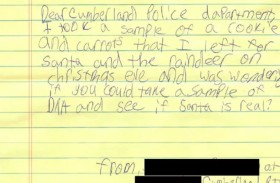 Dear Cumberland Police dapartment
I took a sample of a cookie
and carrots that I left for
Santa and the raindeer on
christmas eve and was wondering
if you could take a sample of
DNA and see if Santa is real?
from,